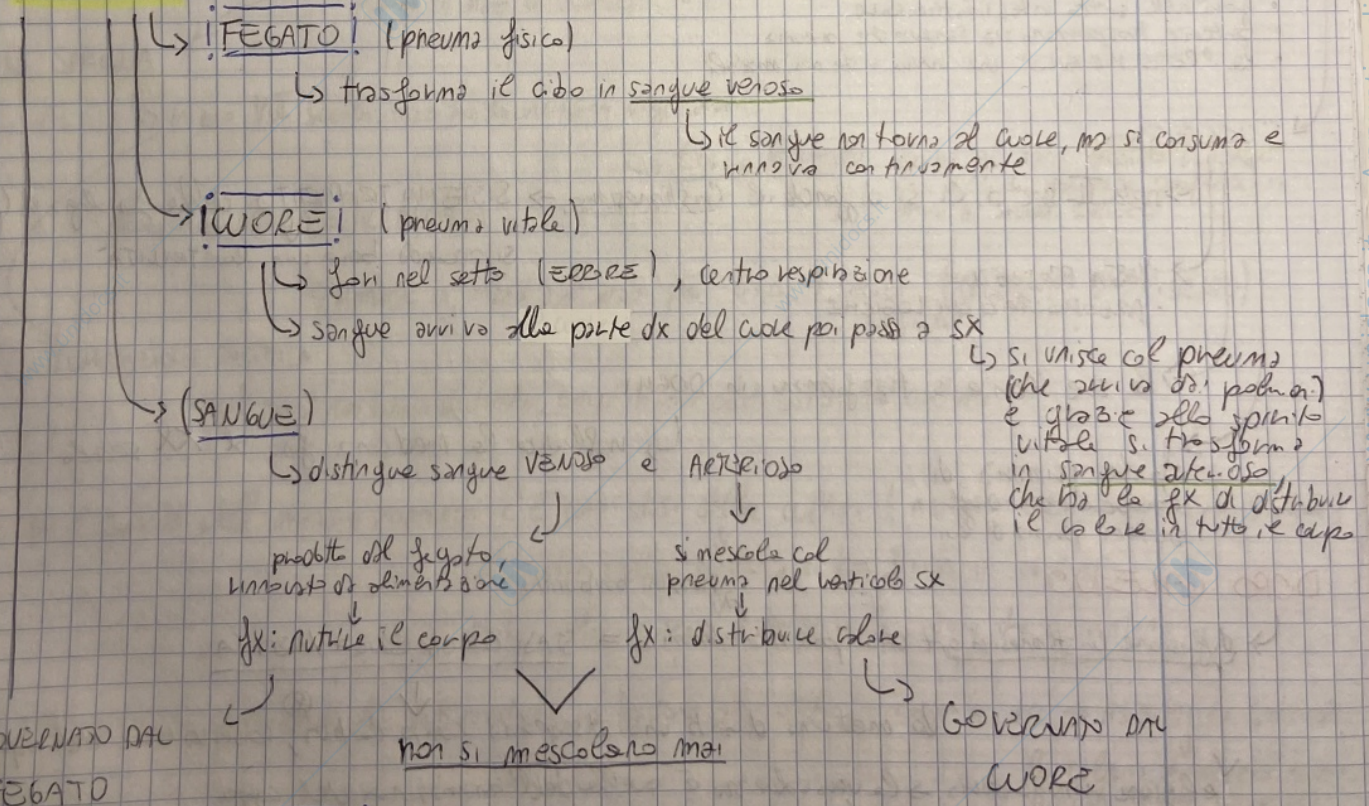 ↳ FEGATO (pneuma fisico)
↳ trasforma il cibo in sangue venoso
↳ il sangue non torna al cuore, ma si consuma e
rinnova continuamente
CUORE (pneuma vitale)
↳ fori nel setto (ERRORE), centro respirazione
↳ sangue arriva alla parte dx del cuore poi passa a sx
↳ si unisce col pneuma
(che arriva dai polmoni)
e grazie allo spirito
vitale si trasforma
in sangue arterioso,
che ha la fx di distribuire
il calore in tutto il corpo
(SANGUE)
↳ distingue sangue VENOSO e ARTERIOSO
prodotto dal fegato,
rinnovato da alimentazione
fx: nutrire il corpo
si mescola col
pneuma nel ventricolo sx
fx: distribuire calore
OVERNATO DAL
EGATO
non si mescolano mai
GOVERNATO DAL
CUORE